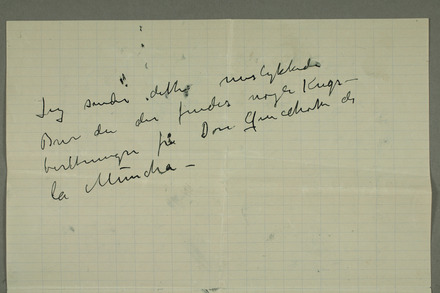 Jeg sender dette mislykkede
Brev da der findes nogle Krigs-
beretninger fra Don Quichotte de
la Mancha -